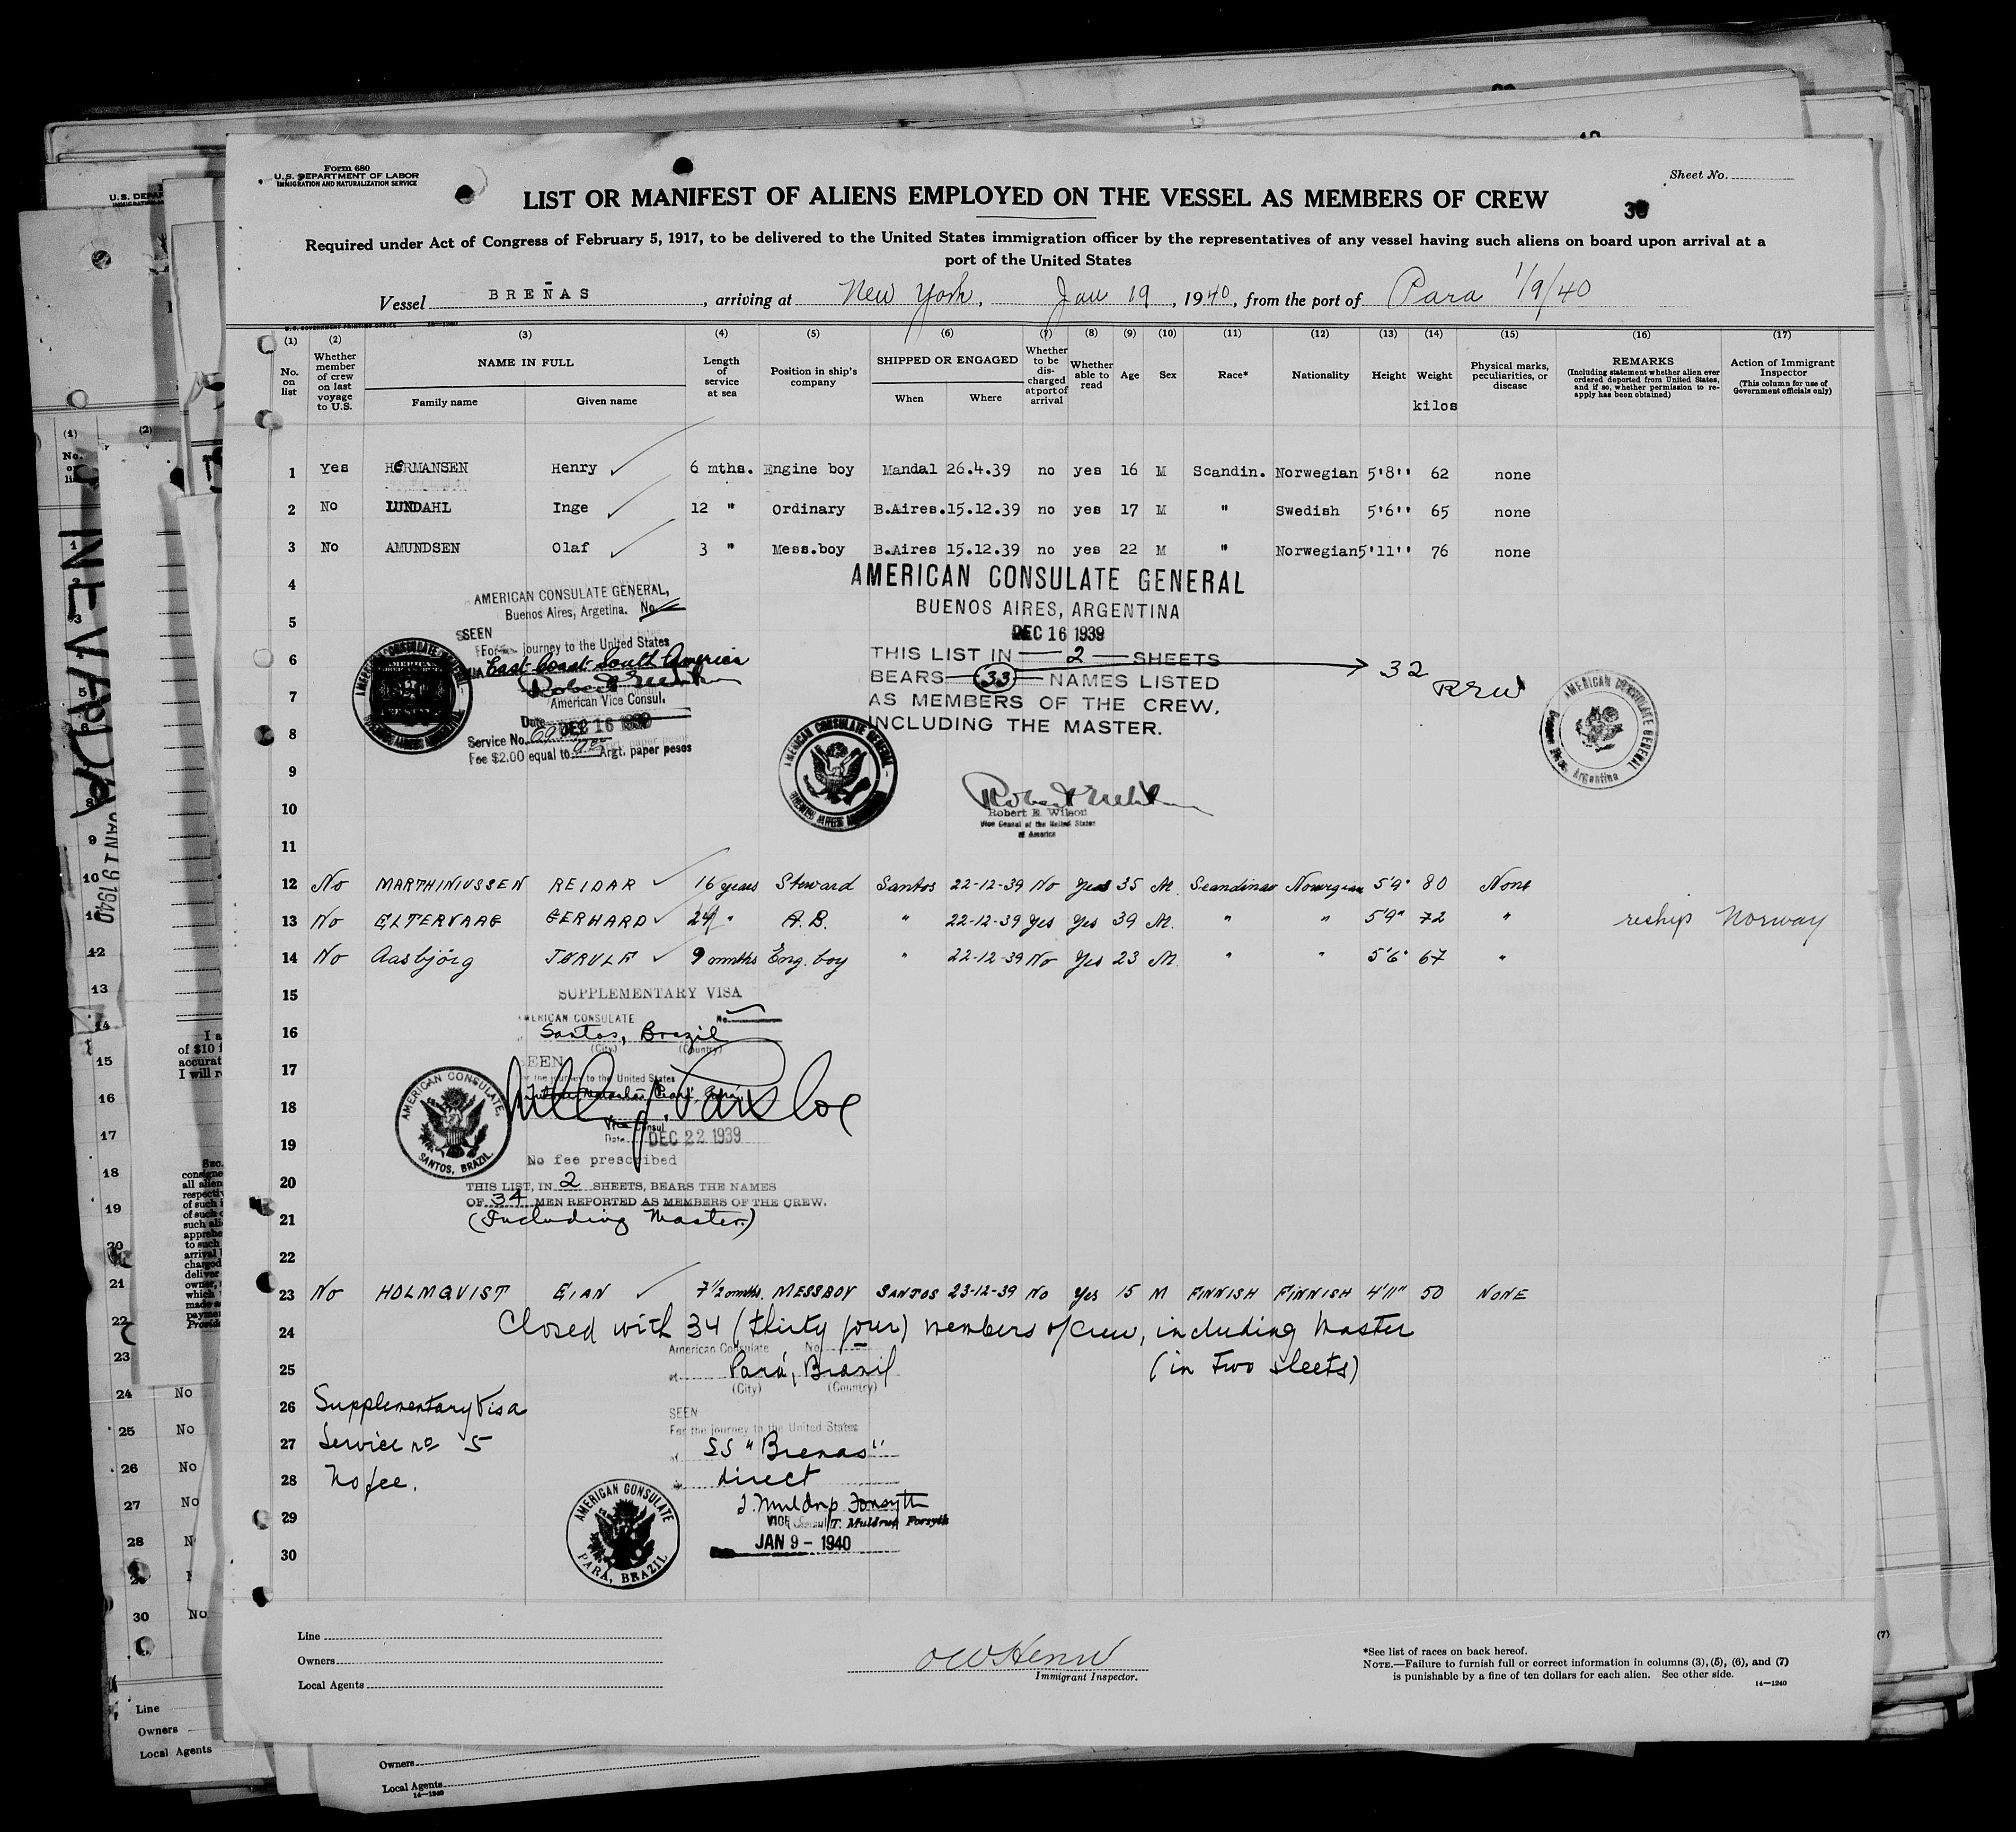 Form 680
U.S. DEPARTMENT OF LABOR
IMMIGRATION AND NATURALIZATION SERVICE
Sheet No.
LIST OR MANIFEST OF ALIENS EMPLOYED ON THE VESSEL AS MEMBERS OF CREW
Required under Act of Congress of February 5, 1917, to be delivered to the United States immigration officer by the representatives of any vessel having such aliens on board upon arrival at a
port of the United States
Vessel BREÑAS, arriving at New York, Jan 19, 1940, from the port of Para 1/9/40
(1) (2) (3) (4) (5) (6) (7) (8) (9) (10) (11) (12) (13) (14) (15) (16) (17)
No. on list
Whether member of crew on last voyage to U.S.
NAME IN FULL
Family name Given name
Length of service at sea
Position in ship's company
SHIPPED OR ENGAGED
When Where
Whether to be discharged at port of arrival
Whether able to read
Age
Sex
Race*
Nationality
Height
Weight
kilos
Physical marks, peculiarities, or disease
REMARKS
(Including statement whether alien ever ordered deported from United States, and if so, whether permission to reapply has been obtained)
Action of Immigrant Inspector
(This column for use of Government officials only)
1 Yes HERMANSEN Henry 6 mths. Engine boy Mandal 26.4.39 no yes 16 M Scandin. Norwegian 5'8'' 62 none
2 No LUNDAHL Inge 12 " Ordinary B.Aires. 15.12.39 no yes 17 M " Swedish 5'6'' 65 none
3 No AMUNDSEN Olaf 3 " Mess.boy B.Aires 15.12.39 no yes 22 M " Norwegian 5'11'' 76 none
4
AMERICAN CONSULATE GENERAL,
Buenos Aires, Argetina. No
SEEN
For journey to the United States
East Coast South America
American Vice Consul.
Date DEC 16 1939
Service No.
Fee $2.00 equal to Argt. paper pesos
AMERICAN CONSULATE GENERAL
BUENOS AIRES, ARGENTINA
DEC 16 1939
THIS LIST IN 2 SHEETS
BEARS 33 NAMES LISTED
32 REW
AS MEMBERS OF THE CREW,
INCLUDING THE MASTER.
AMERICAN CONSULATE GENERAL
Robert E. Wilson
Vice Consul of the United States
of America
5
6
7
8
9
10
11
12 No MARTHINIUSSEN REIDAR 16 years Steward Santos 22-12-39 No Yes 35 M. Scandinav Norwegian 5'9" 80 None
13 No ELTERVAAG GERHARD 24 " A.B. " 22-12-39 Yes Yes 39 M. " " 5'9" 72 " reship Norway
14 No Aasbjörg TORULF 9 months Eng. boy " 22-12-39 No Yes 23 M. " " 5'6" 67 "
15 SUPPLEMENTARY VISA
AMERICAN CONSULATE No.
16 Santos, Brazil
(City) (Country)
SEEN
17
For the journey to the United States
18
Vice Consul
Date DEC 22 1939
19
No fee prescribed
AMERICAN CONSULATE, SANTOS, BRAZIL.
20 THIS LIST, IN 2 SHEETS, BEARS THE NAMES
OF 34 MEN REPORTED AS MEMBERS OF THE CREW.
21 (Including Master.)
22
23 No HOLMQVIST EIAN 7 1/2 months. MESSBOY SANTOS 23-12-39 No Yes 15 M FINNISH FINNISH 4'11" 50 NONE
24 Closed with 34 (thirty four) members of crew, including Master
American Consulate No.
25 at Pará, Brazil (in two sheets)
(City) (Country)
26 Supplementary Visa
SEEN
For the journey to the United States
27 Service no 5
SS "Brenas"
28 No fee.
direct
T. Muldrup Forsyth
29 VICE Consul T. Muldrup Forsyth
JAN 9 - 1940
30
AMERICAN CONSULATE PARA, BRAZIL
Line
Owners
Local Agents
Immigrant Inspector.
*See list of races on back hereof.
NOTE.—Failure to furnish full or correct information in columns (3), (5), (6), and (7)
is punishable by a fine of ten dollars for each alien. See other side.
14—1240
NEVADA
JAN 19 1940
Line
Owners
Local Agents
Owners
Local Agents
14—1240